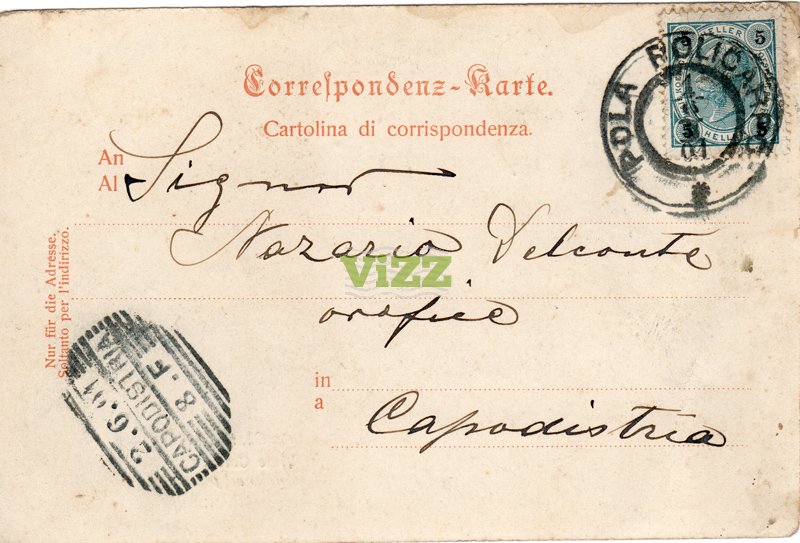 Correspondenz-Karte.
Cartolina di corrispondenza.
An
Al
Signor
Nazario Delconte
orefice
in
a
Capodistria
Nur für die Adresse.
Soltanto per l'indirizzo.
5 HELLER 5
5 HELLER 5
POLA POLICARPO
01
2.6.01
CAPODISTRIA
8.F
ViZZ